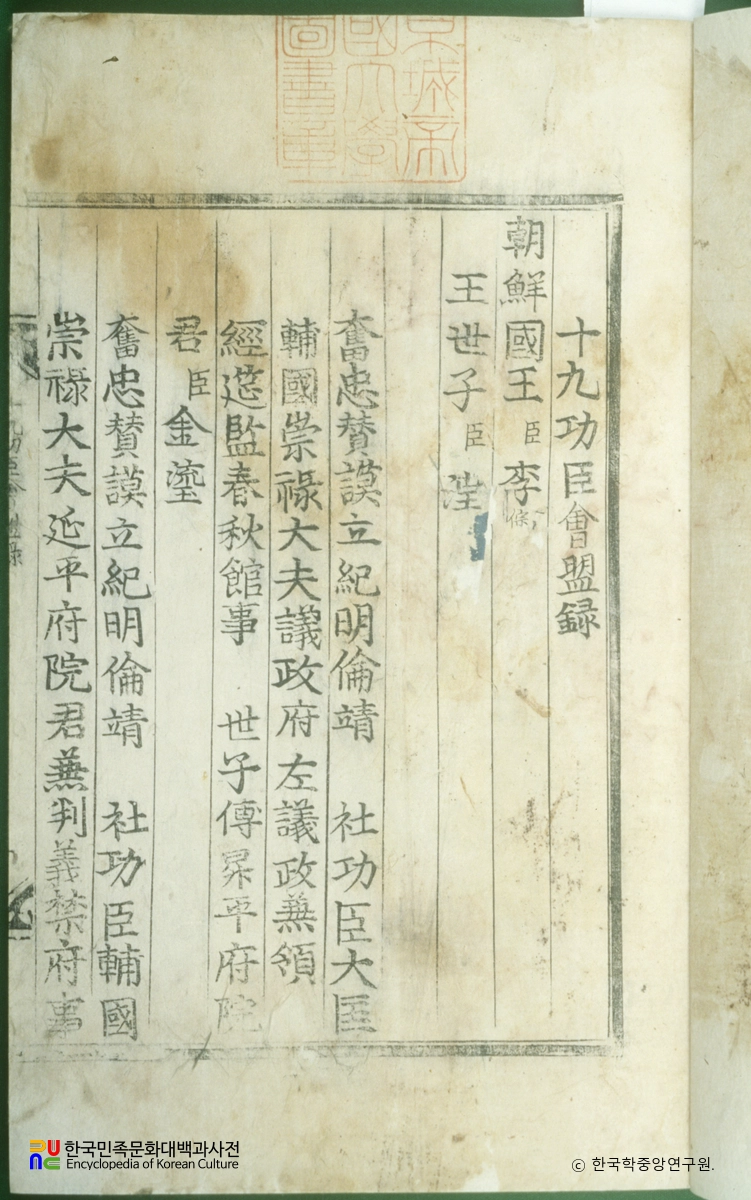 十九功臣會盟錄
朝鮮國王臣李倧
王世子臣𣴎
奮忠贊謨立紀明倫靖 社功臣大匡
輔國崇祿大夫議政府左議政兼領
經筵監春秋館事 世子傅昇平府院
君臣金瑬
奮忠贊謨立紀明倫靖 社功臣輔國
崇祿大夫延平府院君兼判義禁府事
京城帝
國大學
圖書章
한국민족문화대백과사전
Encyclopedia of Korean Culture
ⓒ 한국학중앙연구원.